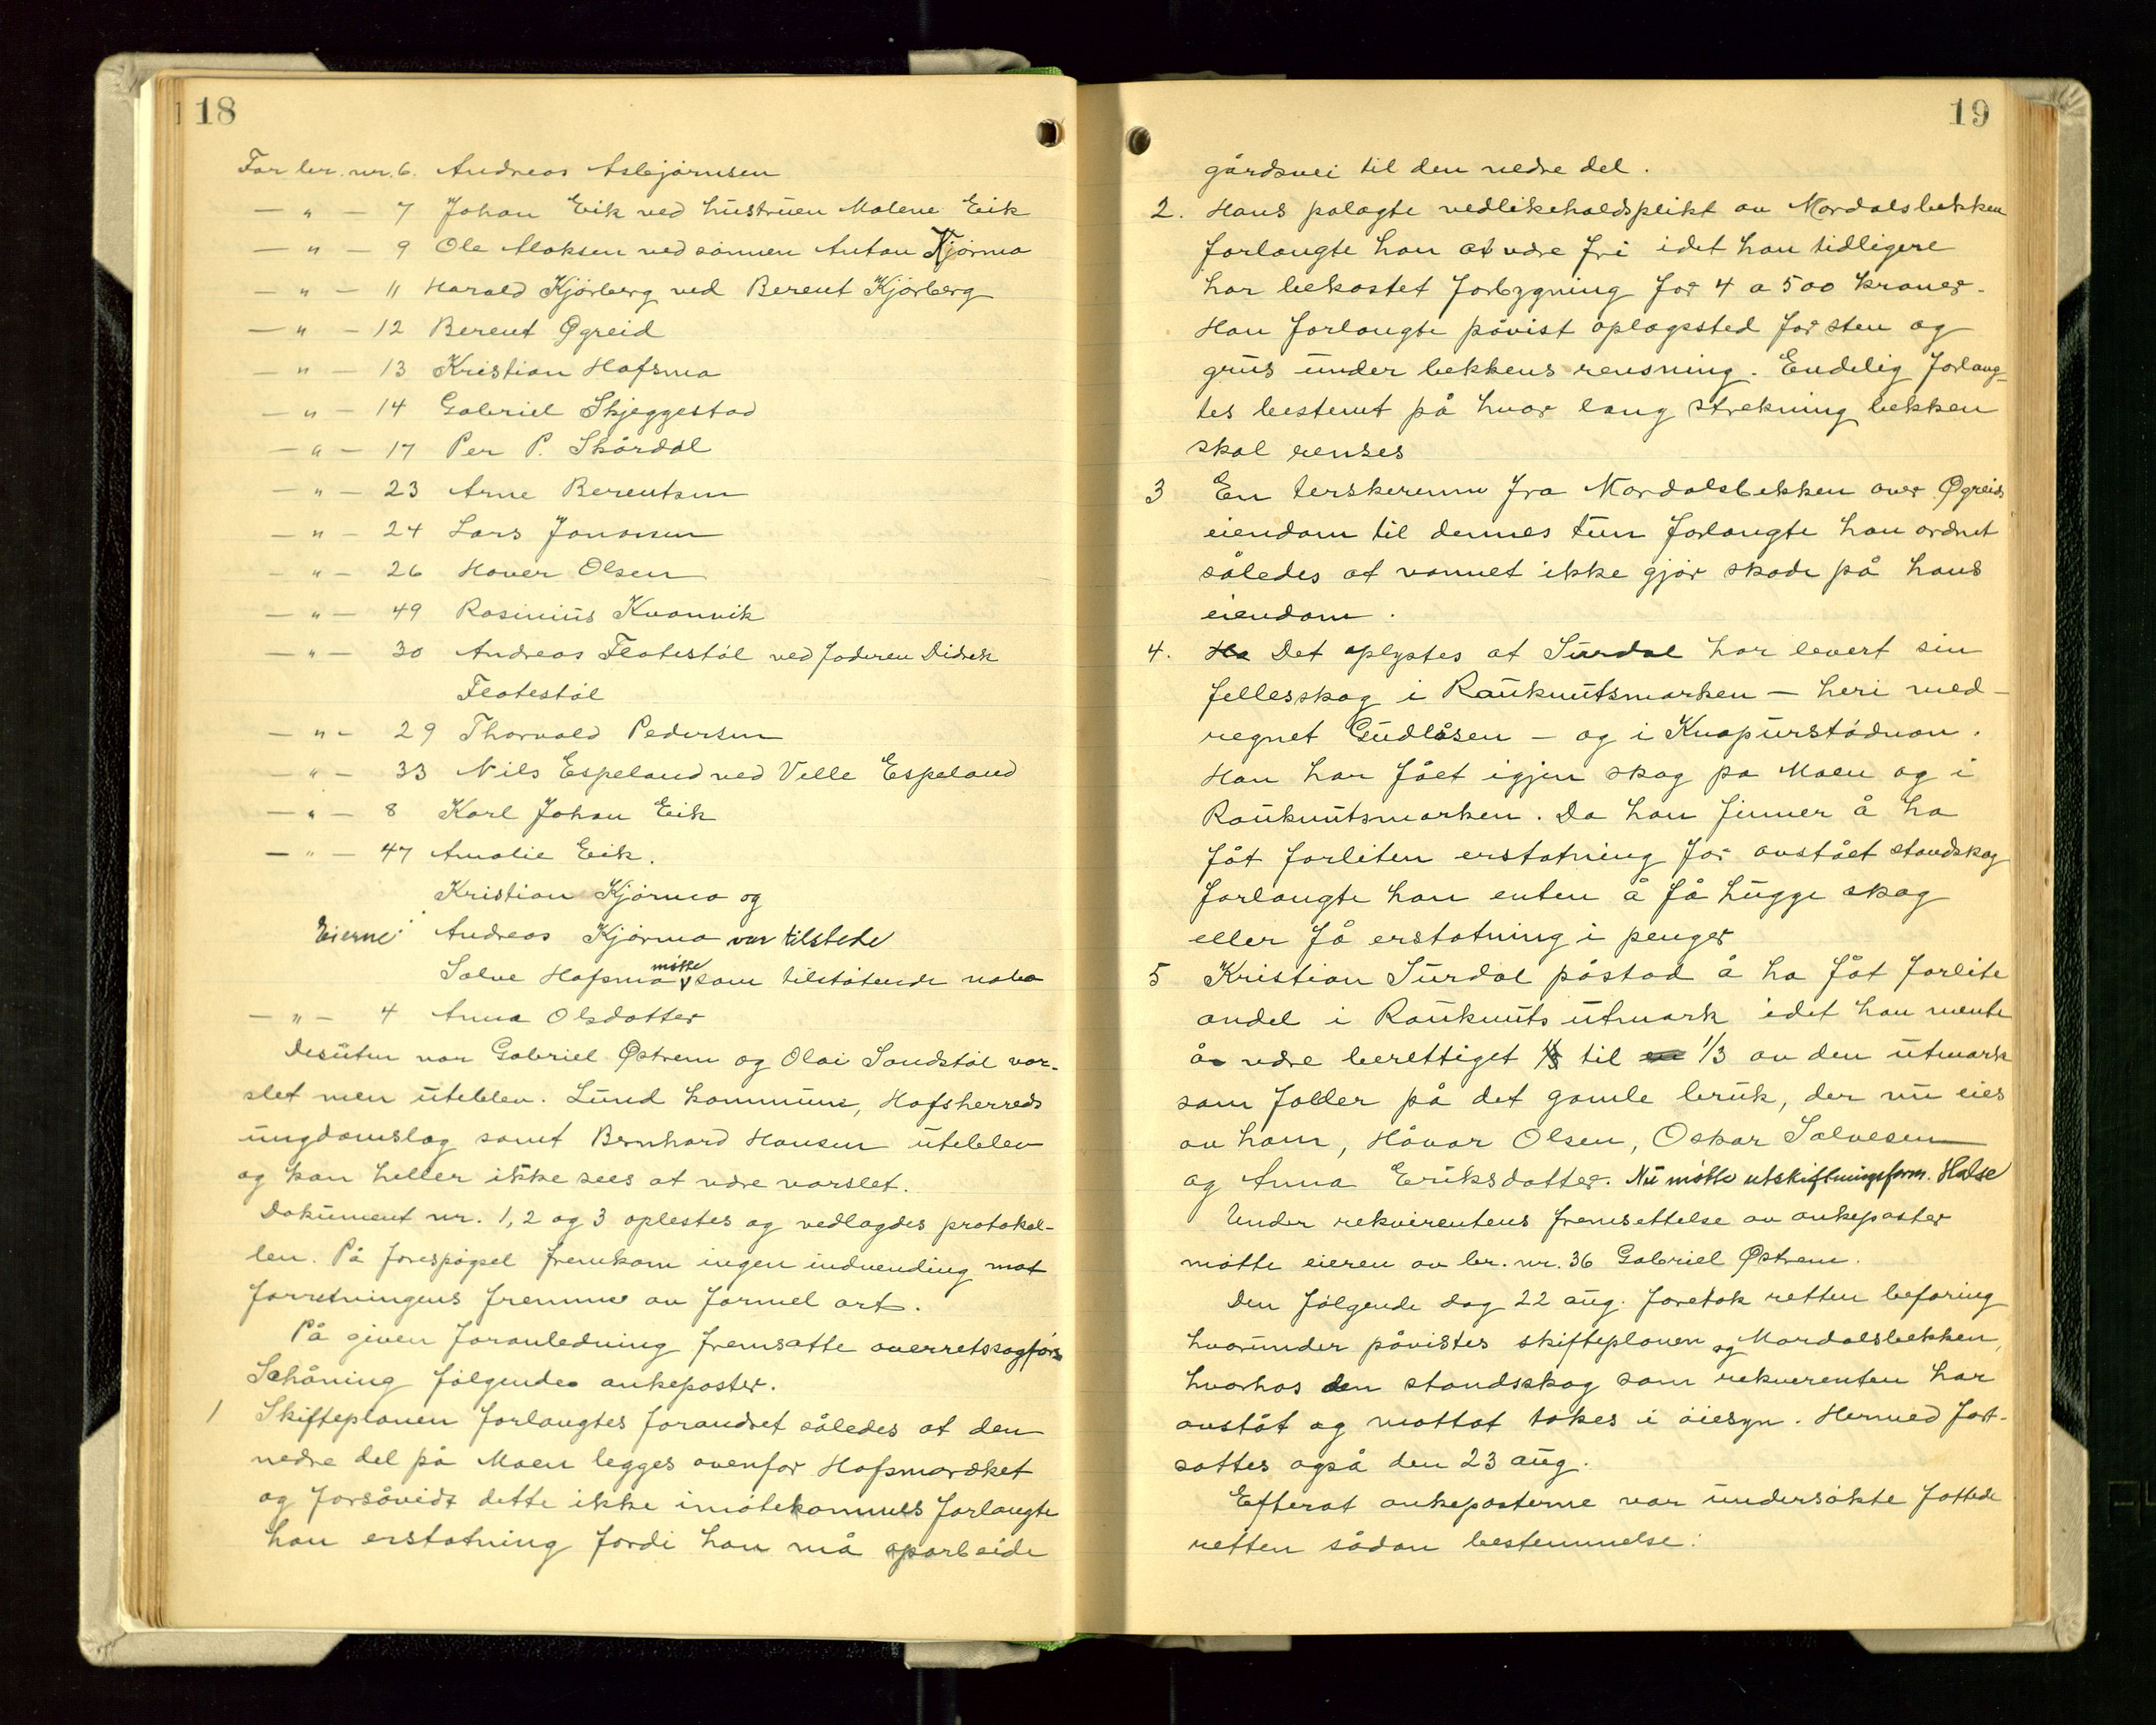 18
For br. nr. 6. Andreas Asbjørnsen
— " — 7 Johan Eik ved hustruen Malene Eik
— " — 9 Ole Aloksen ved sønnen Anton Kjørmo
— " — 11 Harald Kjørberg ved Berent Kjørberg
— " — 12 Berent Øgreid
— " — 13 Kristian Hofsmo
— " — 14 Gabriel Skjeggestad
— " — 17 Per P. Skårdal
— " — 23 Arne Berentsen
— " — 24 Lars Jonassen
— " — 26 Haver Olsen
— " — 49 Rasinius Kvanvik
— " — 30 Andreas Flotestøl ved faderen Didrik
Flotestøl
— " — 29 Thorvald Pedersen
— " — 33 Nils Espeland ved Velle Espeland
— " — 8 Karl Johan Eik
— " — 47 Amalie Eik.
Kristian Kjørmo og
Eierne: Andreas Kjørmo var tilstede
Salve Hofsmo møtte som tilstøtende nabo
— " — 4 Anna Olsdotter
Desuten var Gabriel Østrem og Olai Sandstøl var-
slet men uteblev. Lund kommune, Hofsherreds
ungdomslag samt Bernhard Hansen uteblev
og kan heller ikke sees at være varslet.
Dokument nr. 1, 2 og 3 oplestes og vedlagdes protokol-
len. På forespøgsel fremkom ingen indvending mot
forretningens fremme av formel art.
På given foranledning fremsatte overretssagførs
Schåning følgende ankeposter.
1 Skifteplanen forlangtes forandret således at den
nedre del på Moen legges ovenfor Hofsmordket
og forsåvidt dette ikke imøtekommes forlangte
han erstatning fordi han må oparbeide
19
gårdsvei til den nedre del.
2. Hans palagte vedlikeholdsplikt av Mordalsbekken
forlangte han at være fri idet han tidligere
har bekostet forbygning for 4 a 500 kroner.
Han forlangte påvist oplagssted for sten og
grus under bekkens rensning. Endelig forlang-
tes bestemt på hvor lang strekning bekken
skal renses
3 En terskerenn fra Mordalsbekken over Øgreids
eiendom til dennes tun forlangte han ordnet
således at vannet ikke gjør skade på hans
eiendom.
4. Ha Det oplystes at Surdal har levert sin
fellesskog i Rauknutsmarken — heri med-
regnet Gudlåsen — og i Knapurstødnan.
Han har fået igjen skog pa Moen og i
Rauknutsmarken. Da han finner å ha
fåt forliten erstatning for avstået standskog
forlangte han enten å få hugge skog
eller få erstatning i penger
5 Kristian Surdal påstod å ha fåt forlite
andel i Rauknuts utmark idet han mente
å være berettiget til 1/3 av den utmark
som faller på det gamle bruk, der nu eies
av ham, Håvar Olsen, Oskar Salvesen
og Anna Eriksdotter. Nu møtte utskiftningsform. Halse
Under rekvirentens fremsettelse av ankeposter
møtte eieren av br. nr. 36 Gabriel Østrem.
Den følgende dag 22 aug. foretok retten befaring
hvorunder påvistes skifteplanen og Mordalsbekken,
hvorhos den standsskog som rekvirenten har
avståt og mottat tokes i øiesyn. Hermed fort-
sattes også den 23 aug.
Efterat ankeposterne var undersøkte fattede
retten sådan bestemmelse: